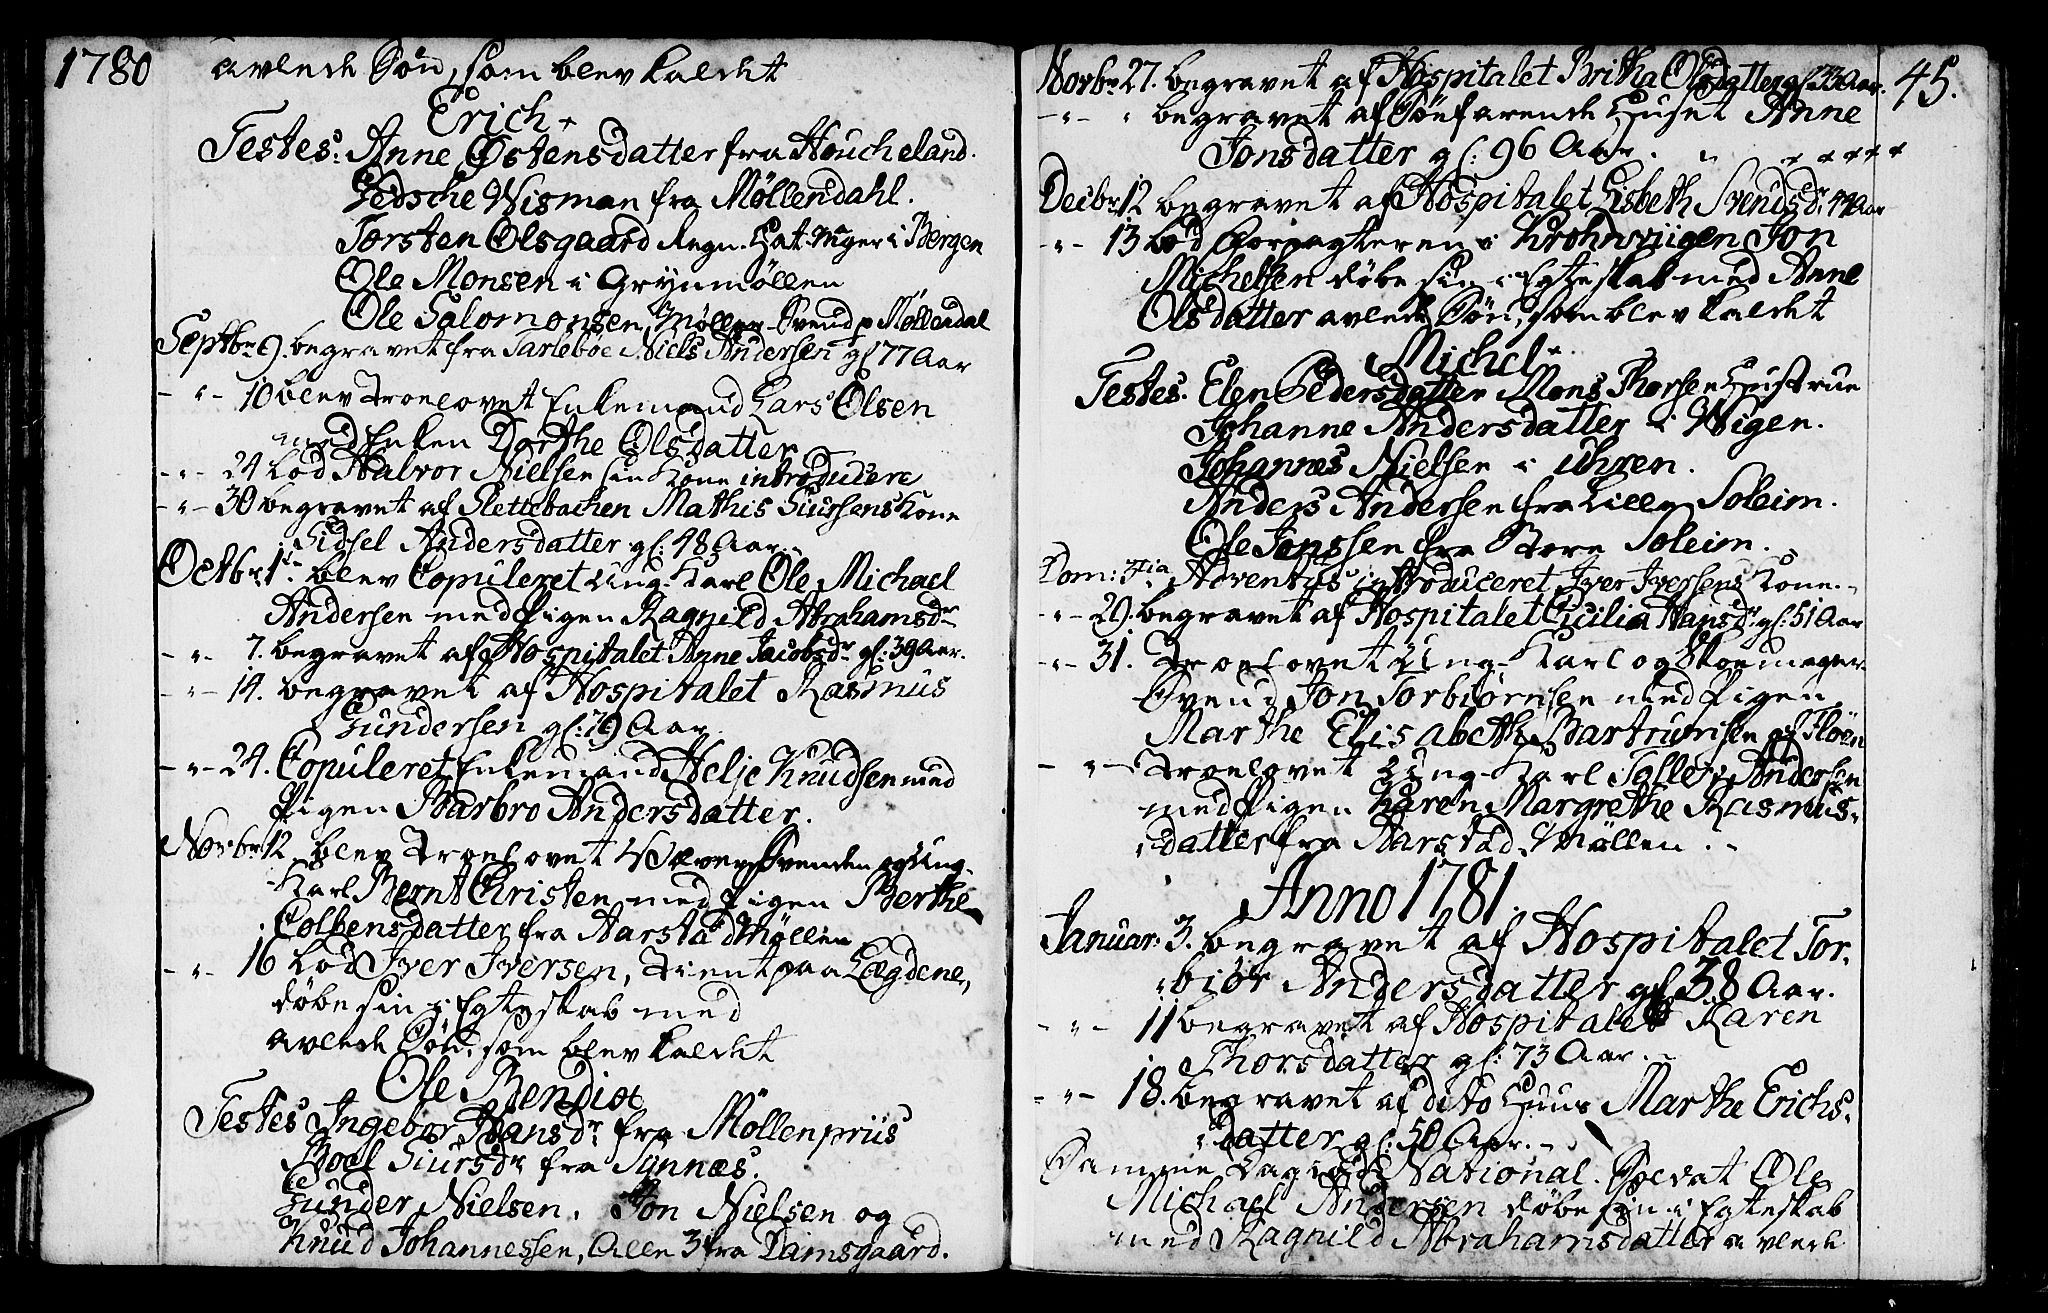 1780
avlede Søn, som blev kaldet
Erich
Testes: Anne Østensdatter fra Houcheland.
Gedsche Wisman fra Møllendahl.
Torsten Olsgaard Regn. Hat-mger i Bergen
Ole Monsen i Grynmøllen
Ole Salomonsen, Møller-Svend p Møllendal
Septbr 9. begravet fra Tarleböe Niels Andersen gl 77 Aar
- " - 10 blev Troelovet Enkemand Lars Olsen
med Enken Dorthe Olsdatter
- " - 24 lod Halvor Nielsen sin Kone introducere
- " - 30 begravet af Slettebacken Mathis Siursens Kone
Sidsel Andersdatter gl: 48 Aar.
Octbr 1te blev Copuleret Ung-Karl Ole Michael
Andersen med Pigen Ragnild Abrahamsdr
- " - 7. begravet af Hospitalet Anne Jacobsdr gl: 39 Aar.
- " - 14. begravet af Hospitalet Rasmus
Gundersen gl: 79 Aar
- " - 24. Copuleret Enkemand Helje Knudsen med
Pigen Barbro Andersdatter.
Novbr 12 blev Troelovet Væver Svenden og Ung-
Karl Bernt Christen med Pigen Berthe
Colbensdatter fra Aarstad Møllen
- " - 16 lod Iver Iversen, Tient paa Lægdene,
döbe sin i Egteskab med
avlede Søn, som blev kaldet
Ole Bendix
Testes Ingebor Hansdr fra Möllenpriis
Boel Siursdr fra Synnæs.
Gunder Nielsen. Jon Nielsen og
Knud Johannessen, Alle 3 fra Damsgaard.
45.
Novbr 27. begravet af Hospitalet Britha Olsdatter gl: 73 Aar.
- " - " begravet af Söefarende Huset Anne
Jonsdatter gl: 96 Aar.
Decbr 12 begravet af Hospitalet Lisbeth Svendsdr 44 Aar
- " - 13 lod Forpagteren i Krohnviigen Jon
Michelsen döbe sin i Egteskab med Anne
Olsdatter avlede Søn, som blev kaldet
Michel
Testes. Elen Pedersdatter Mons Thorsen Hustrue
Johanne Andersdatter i Wigen.
Johannes Nielsen i Uhren.
Anders Andersen fra Lille Soleim.
Ole Jonssen fra Store Soleim.
Dom: 3tia Adventus introduceret Iver Iversens Kone.
- " - 29. begravet af Hospitalet Cicilia Hansdr gl: 51 Aar
- " - 31. Troelovet Ung-Karl og Skoemager
Svend Jon Torbiörnsen med Pigen
Marthe Elisabeth Bartrumsen af Flöen
- " - Troelovet Ung-Karl Tollev Andersen
med Pigen Karen Margrethe Rasmus-
datter fra Aarstad Møllen.
Anno 1781.
Januar: 3. begravet af Hospitalet Tor-
biör Andersdatter gl 38 Aar.
- " - 11 begravet af Hospitalet Karen
Thorsdatter gl: 73 Aar.
- " - 18. begravet af dito Huus Marthe Erichs-
datter gl: 50 Aar.
Samme Dag lod National-Soldat Ole
Michael Andersen döbe sin i Egteskab
med Ragnild Abrahamsdatter avlede